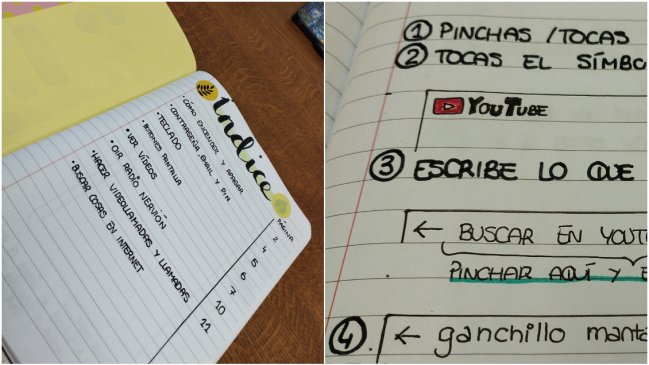 Índice
PÁGINA
· CÓMO ENCENDER Y APAGAR.
· CONTRASEÑA, EMAIL Y PIN
· TECLADO
· BOTONES PANTALLA
· VER VÍDEOS
· OIR RADIO NERVIÓN
· HACER VIDEOLLAMADAS Y LLAMADAS
· BUSCAR COSAS EN INTERNET
2
4
5
6
7
10
11
1 PINCHAS / TOCAS
2 TOCAS EL SÍMBO
YOUTUBE
3 ESCRIBE LO QUE
← BUSCAR EN YOUT
PINCHAR AQUÍ Y E
4. ← ganchillo manta